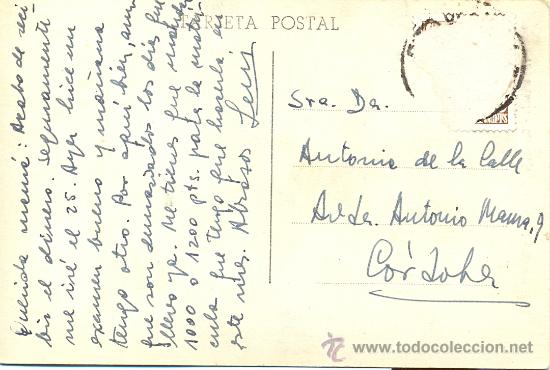 TARJETA POSTAL
Querida mamá: Acabo de reci-
bir el dinero. Seguramente
me iré el 25. Ayer hice un
examen bueno y mañana
tengo otro. Por aquí bien, aun-
que son demasiados los días que
llevo ya. Me tienes que mandar
1000 o 1200 pts. para la matrí-
cula que tengo que hacerla en
este mes. Abrazos
Luis
Sra. Da.
Antonia de la Calle
Avda. Antonio Maura, 9
Córdoba
todocoleccion
www.todocoleccion.net